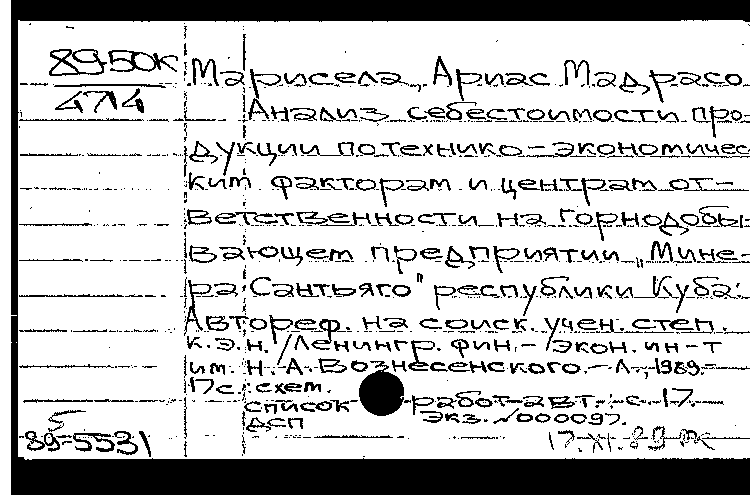 89-50К
4714
Марисела, Ариас Мадрасо.
Анализ себестоимости про-
дукции по технико-экономичес
ким факторам и центрам от-
ветственности на горнодобы-
вающем предприятии „Мине-
ра Сантьяго" республики Куба:
Автореф. на соиск. учен. степ.
к.э.н. /Ленингр. фин.-экон. ин-т
им. Н.А. Вознесенского.-Л., 1989.-
17с.: схем.
список работ авт.: с. 17.
ДСП Экз. №000097.
5
89-5531
17.XI.89